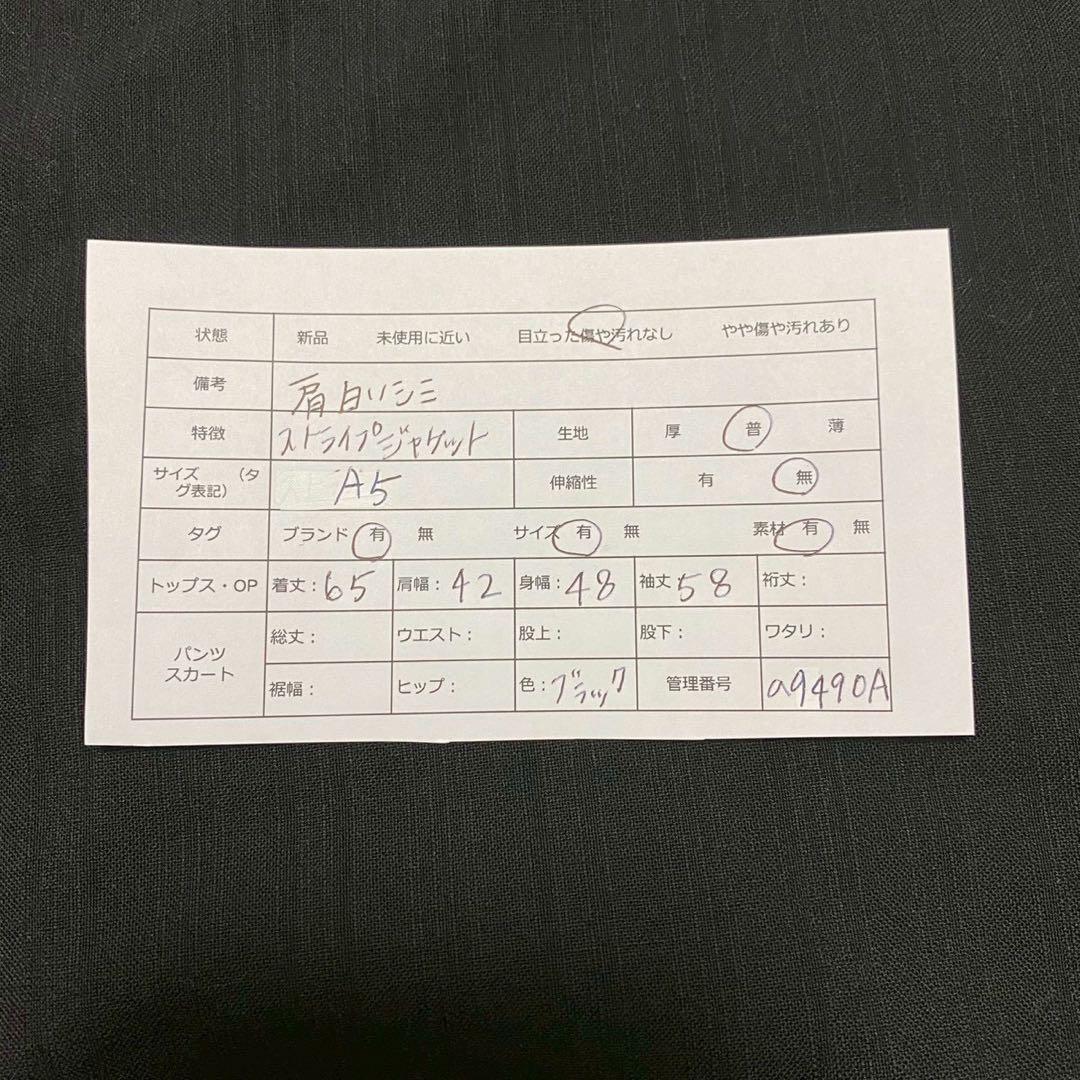 状態 新品 未使用に近い 目立った傷や汚れなし やや傷や汚れあり
備考 肩白いシミ
特徴 ストライプジャケット 生地 厚 普 薄
サイズ （タグ表記） A5 伸縮性 有 無
タグ ブランド 有 無 サイズ 有 無 素材 有 無
トップス・OP 着丈：65 肩幅：42 身幅：48 袖丈 58 裄丈：
パンツ スカート 総丈： ウエスト： 股上： 股下： ワタリ：
裾幅： ヒップ： 色：ブラック 管理番号 a9490A